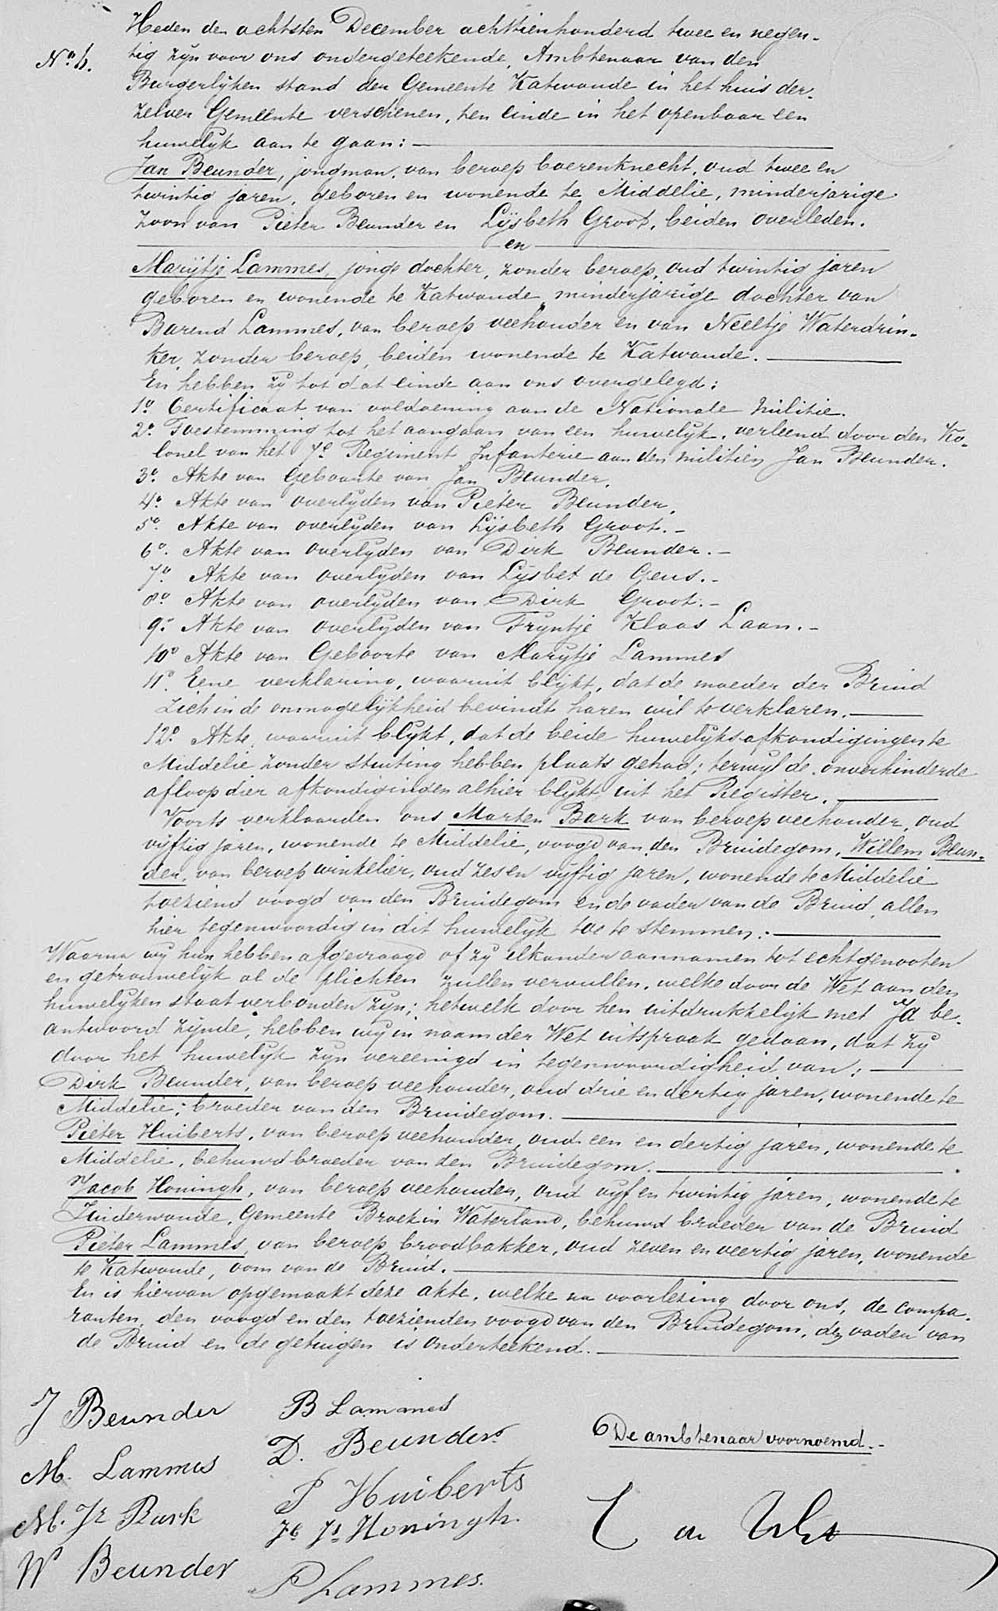 Heden den achtsten December achttienhonderd twee en negen-
No 6.
tig zijn voor ons ondergeteekende, Ambtenaar van den
Burgerlijken stand der Gemeente Katwoude in het huis der-
zelver Gemeente verschenen, ten einde in het openbaar een
huwelijk aan te gaan:
Jan Beunder, jongman, van beroep boerenknecht, oud twee en
twintig jaren, geboren en wonende te Middelie, minderjarige
zoon van Pieter Beunder en Lijsbeth Groot, beiden overleden.
en
Marijtje Lammes, jonge dochter, zonder beroep, oud twintig jaren
geboren en wonende te Katwoude, minderjarige dochter van
Barend Lammes, van beroep veehouder en van Neeltje Waterdrin-
ker, zonder beroep, beiden wonende te Katwoude.
En hebben zij tot dat einde aan ons overgelegd:
1o Certificaat van voldoening aan de Nationale Militie.
2o Toestemming tot het aangaan van een huwelijk, verleend door den Ko-
lonel van het 7e Regiment Infanterie aan den milicien Jan Beunder.
3o Akte van Geboorte van Jan Beunder.
4o Akte van overlijden van Pieter Beunder.
5o Akte van overlijden van Lijsbeth Groot.
6o Akte van overlijden van Dirk Beunder.
7o Akte van overlijden van Lijsbet de Geus.
8o Akte van overlijden van Dirk Groot.
9o Akte van overlijden van Trijntje Klaas Laan.
10o Akte van Geboorte van Marijtje Lammes
11o Eene verklaring, waaruit blijkt, dat de moeder der Bruid
zich in de onmogelijkheid bevindt haren wil te verklaren.
12o Akte, waaruit blijkt, dat de beide huwelijksafkondigingen te
Middelie zonder stuiting hebben plaats gehad; terwijl de onverhinderde
afloop dier afkondigingen alhier blijkt uit het Register.
Voorts verklaarden ons Marten Bark van beroep veehouder, oud
vijftig jaren, wonende te Middelie, voogd van den Bruidegom, Willem Beun-
der, van beroep winkelier, oud zes en vijftig jaren, wonende te Middelie
toeziend voogd van den Bruidegom en de vader van de Bruid, allen
hier tegenwoordig in dit huwelijk toe te stemmen.
Waarna wij hun hebben afgevraagd of zij elkander aannamen tot echtgenooten
en getrouwelijk al de plichten zullen vervullen, welke door de Wet aan den
huwelijken staat verbonden zijn; hetwelk door hen uitdrukkelijk met Ja be-
antwoord zijnde, hebben wij in naam der Wet uitspraak gedaan, dat zij
door het huwelijk zijn vereenigd in tegenwoordigheid van:
Dirk Beunder, van beroep veehouder, oud drie en dertig jaren, wonende te
Middelie, broeder van den Bruidegom.
Pieter Huiberts, van beroep veehouder, oud een en dertig jaren, wonende te
Middelie, behuwd broeder van den Bruidegom.
Jacob Honingh, van beroep veehouder, oud vijf en twintig jaren, wonende te
Zuiderwoude, Gemeente Broek in Waterland, behuwd broeder van de Bruid
Pieter Lammes, van beroep broodbakker, oud zeven en veertig jaren, wonende
te Katwoude, oom van de Bruid.
En is hiervan opgemaakt deze akte, welke na voorlezing door ons, de compa-
ranten, den voogd en den toezienden voogd van den Bruidegom, de vader van
de Bruid en de getuigen is onderteekend.
J Beunder
M. Lammes
M. Jz Bark
W Beunder
B Lammes
D. Beunder
P Huiberts
Jb Js Honingh
P Lammes.
De ambtenaar voornoemd.